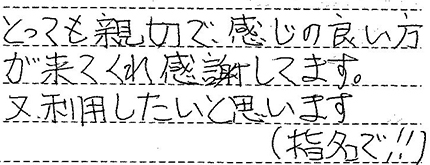 とっても親切で、感じの良い方
が来てくれ感謝してます。
又利用したいと思います
(指名で!!)